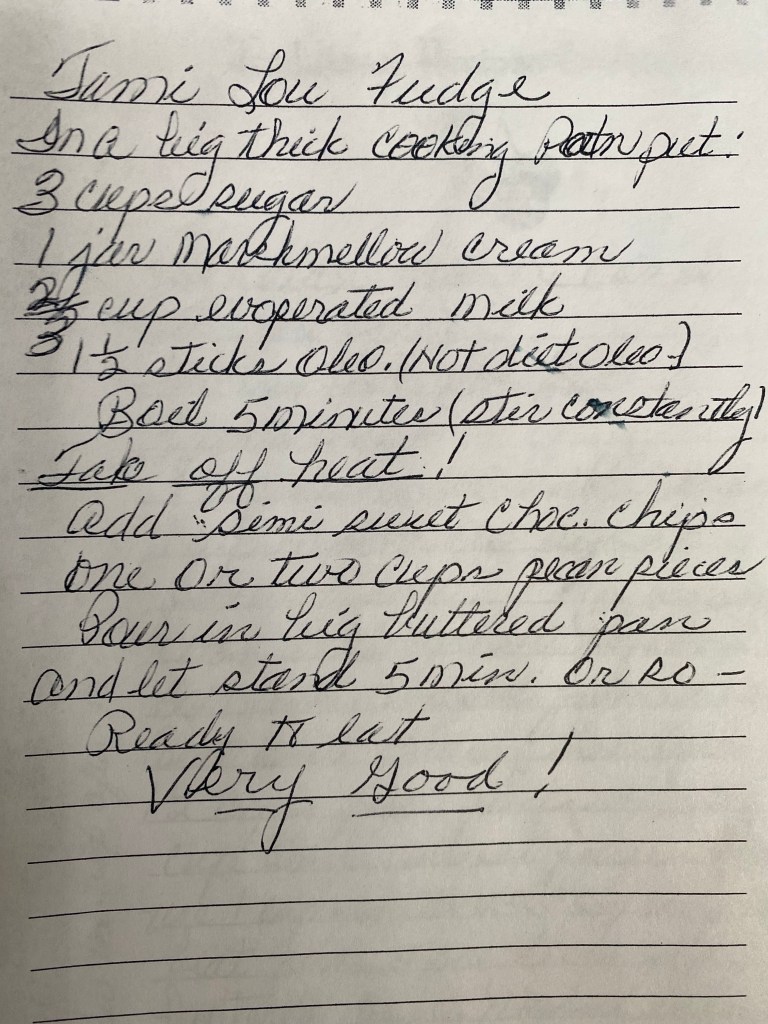 Tami Lou Fudge
In a big thick cooking Pan put:
3 cups sugar
1 jar Marshmellow cream
2/3 cup evoperated milk
1 1/2 sticks Oleo. (Not diet Oleo)
Boil 5 minutes (stir constantly)
Take off heat!
Add semi sweet choc. chips
one or two cups pecan pieces
Pour in big buttered pan
and let stand 5 min. or so -
Ready to eat
Very Good!